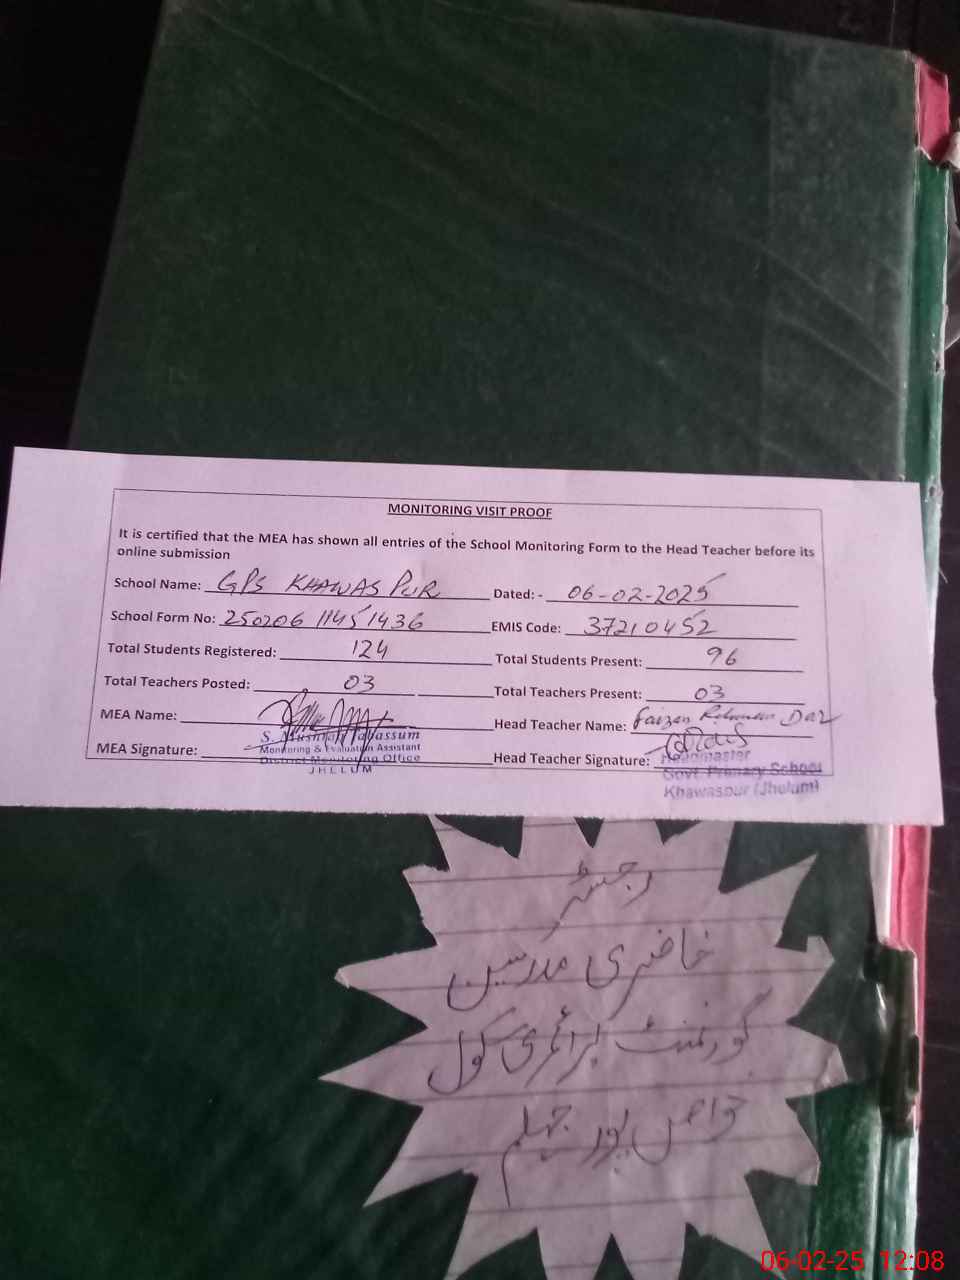 MONITORING VISIT PROOF
It is certified that the MEA has shown all entries of the School Monitoring Form to the Head Teacher before its
online submission
School Name: GPS KHAWAS PUR Dated: - 06-02-2025
School Form No: 250206 11451436 EMIS Code: 37210452
Total Students Registered: 124 Total Students Present: 96
Total Teachers Posted: 03 Total Teachers Present: 03
MEA Name: Head Teacher Name: Faizan Rehman Dar
S. Mushtaq Tabassum
Monitoring & Evaluation Assistant
MEA Signature: District Monitoring Office Head Teacher Signature:
JHELUM
Headmaster
Govt. Primary School
Khawaspur (Jhelum)
رجسٹر
حاضری مدرسین
گورنمنٹ پرائمری سکول
خواص پور جہلم
06-02-25 12:08